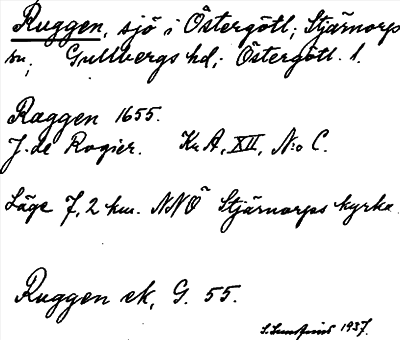 Ruggen, sjö i Östergötl; Stjärnorps
sn; Gullbergs hd; Östergötl. l.
Raggen 1655.
J. de Rogier. Kr A, XII, N:o C.
Läge 7,2 km. NNÖ Stjärnorps kyrka.
Ruggen ek, G. 55.
1937.